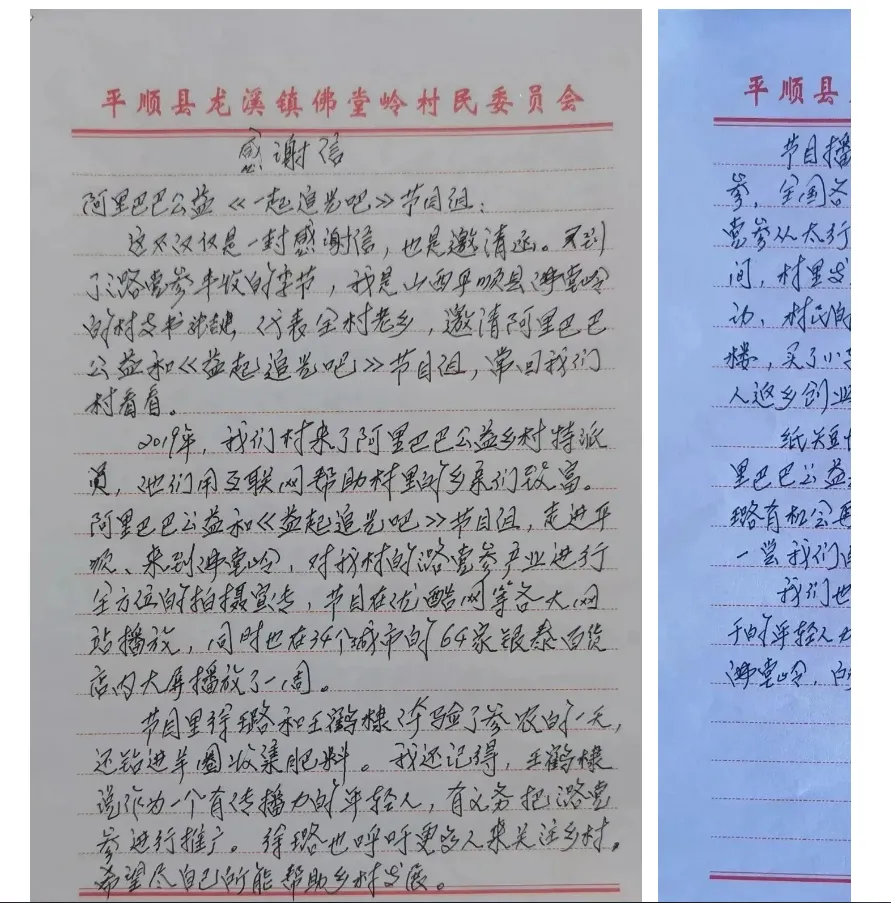 平顺县龙溪镇佛堂岭村民委员会
感谢信
阿里巴巴公益《一起追光吧》节目组：
这不仅仅是一封感谢信，也是邀请函。又到
了潞党参丰收的季节，我是山西平顺县佛堂岭
的村支书 代表全村老乡，邀请阿里巴巴
公益和《益起追光吧》节目组，常回我们
村看看。
2019年，我们村来了阿里巴巴公益乡村特派
员，他们用互联网帮助村里的乡亲们致富。
阿里巴巴公益和《益起追光吧》节目组，走进平
顺、来到佛堂岭，对我村的潞党参产业进行
全方位的拍摄宣传，节目在优酷网等各大网
站播放，同时也在34个城市的64家银泰百货
店内大屏播放了一周。
节目里徐璐和王鹤棣体验了参农的一天，
还钻进羊圈收集肥料。我还记得，王鹤棣
说作为一个有传播力的年轻人，有义务把潞党
参进行推广。徐璐也呼吁更多人来关注乡村，
希望尽自己所能帮助乡村发展。
平顺县
节目播
参，全国各
党参从太行
间，村里发
动、村民的
楼，买了小
人返乡创业
纸短
里巴巴公益
璐有机会再
一尝我们
我们也
干的年轻人
佛堂岭，